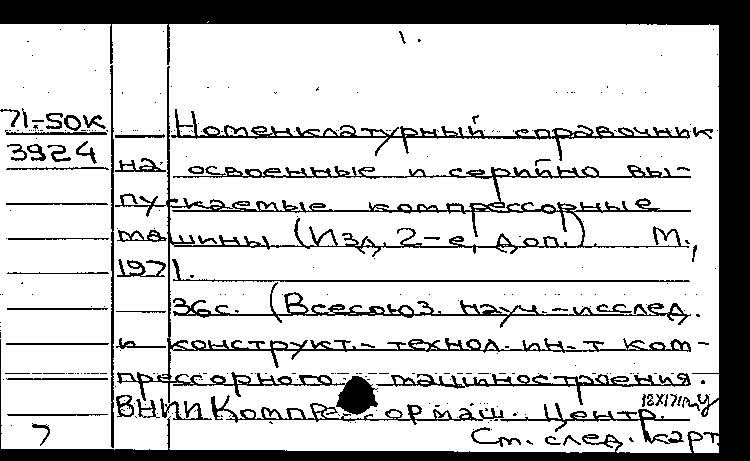 1.
71-50К
3924
Номенклатурный справочник
на освоенные и серийно вы-
пускаемые компрессорные
машины (Изд. 2-е, доп.). М.,
1971.
36с. (Всесоюз. науч.-исслед.
и конструкт.-технол. ин-т ком-
прессорного машиностроения.
ВНИИКомпрессормаш. Центр.
См. след. карт
7